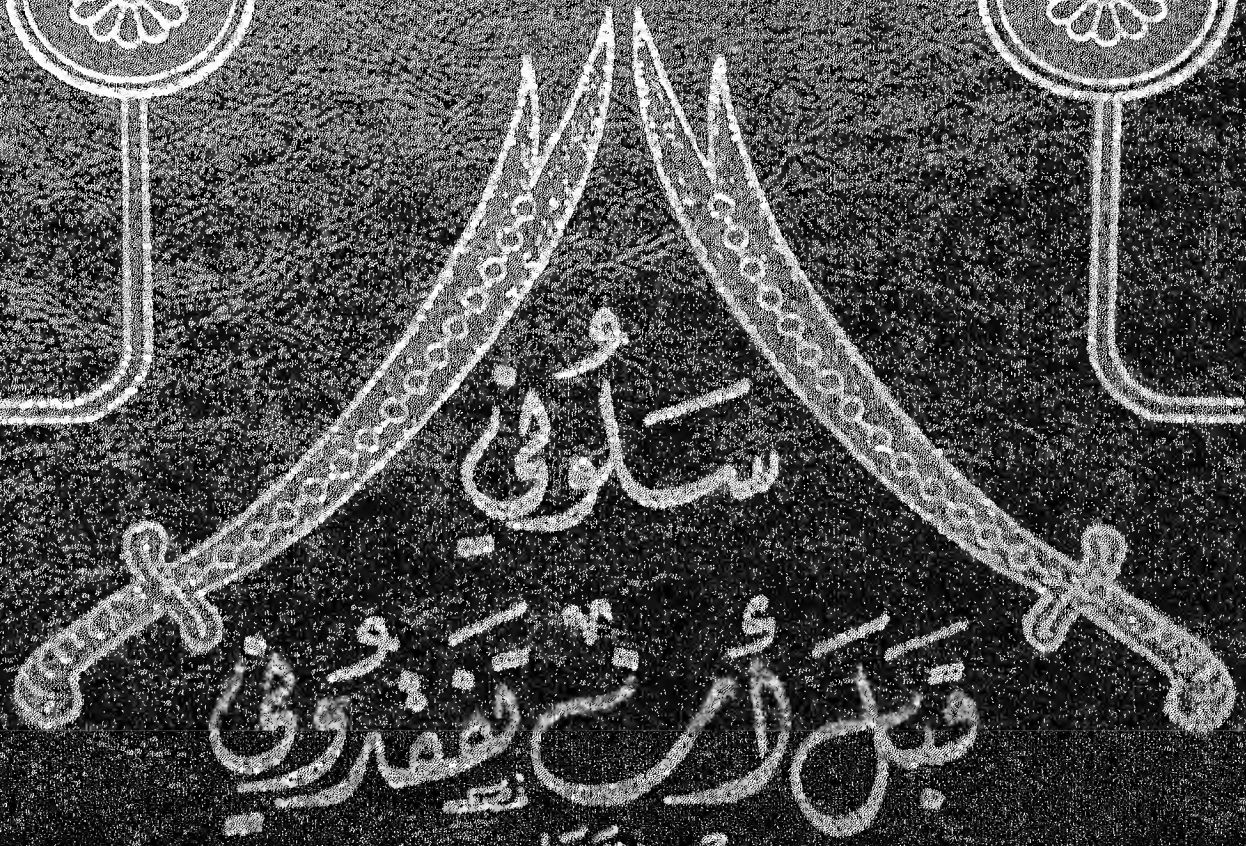 سَلُوني
قَبلَ أن تَفقدُوني